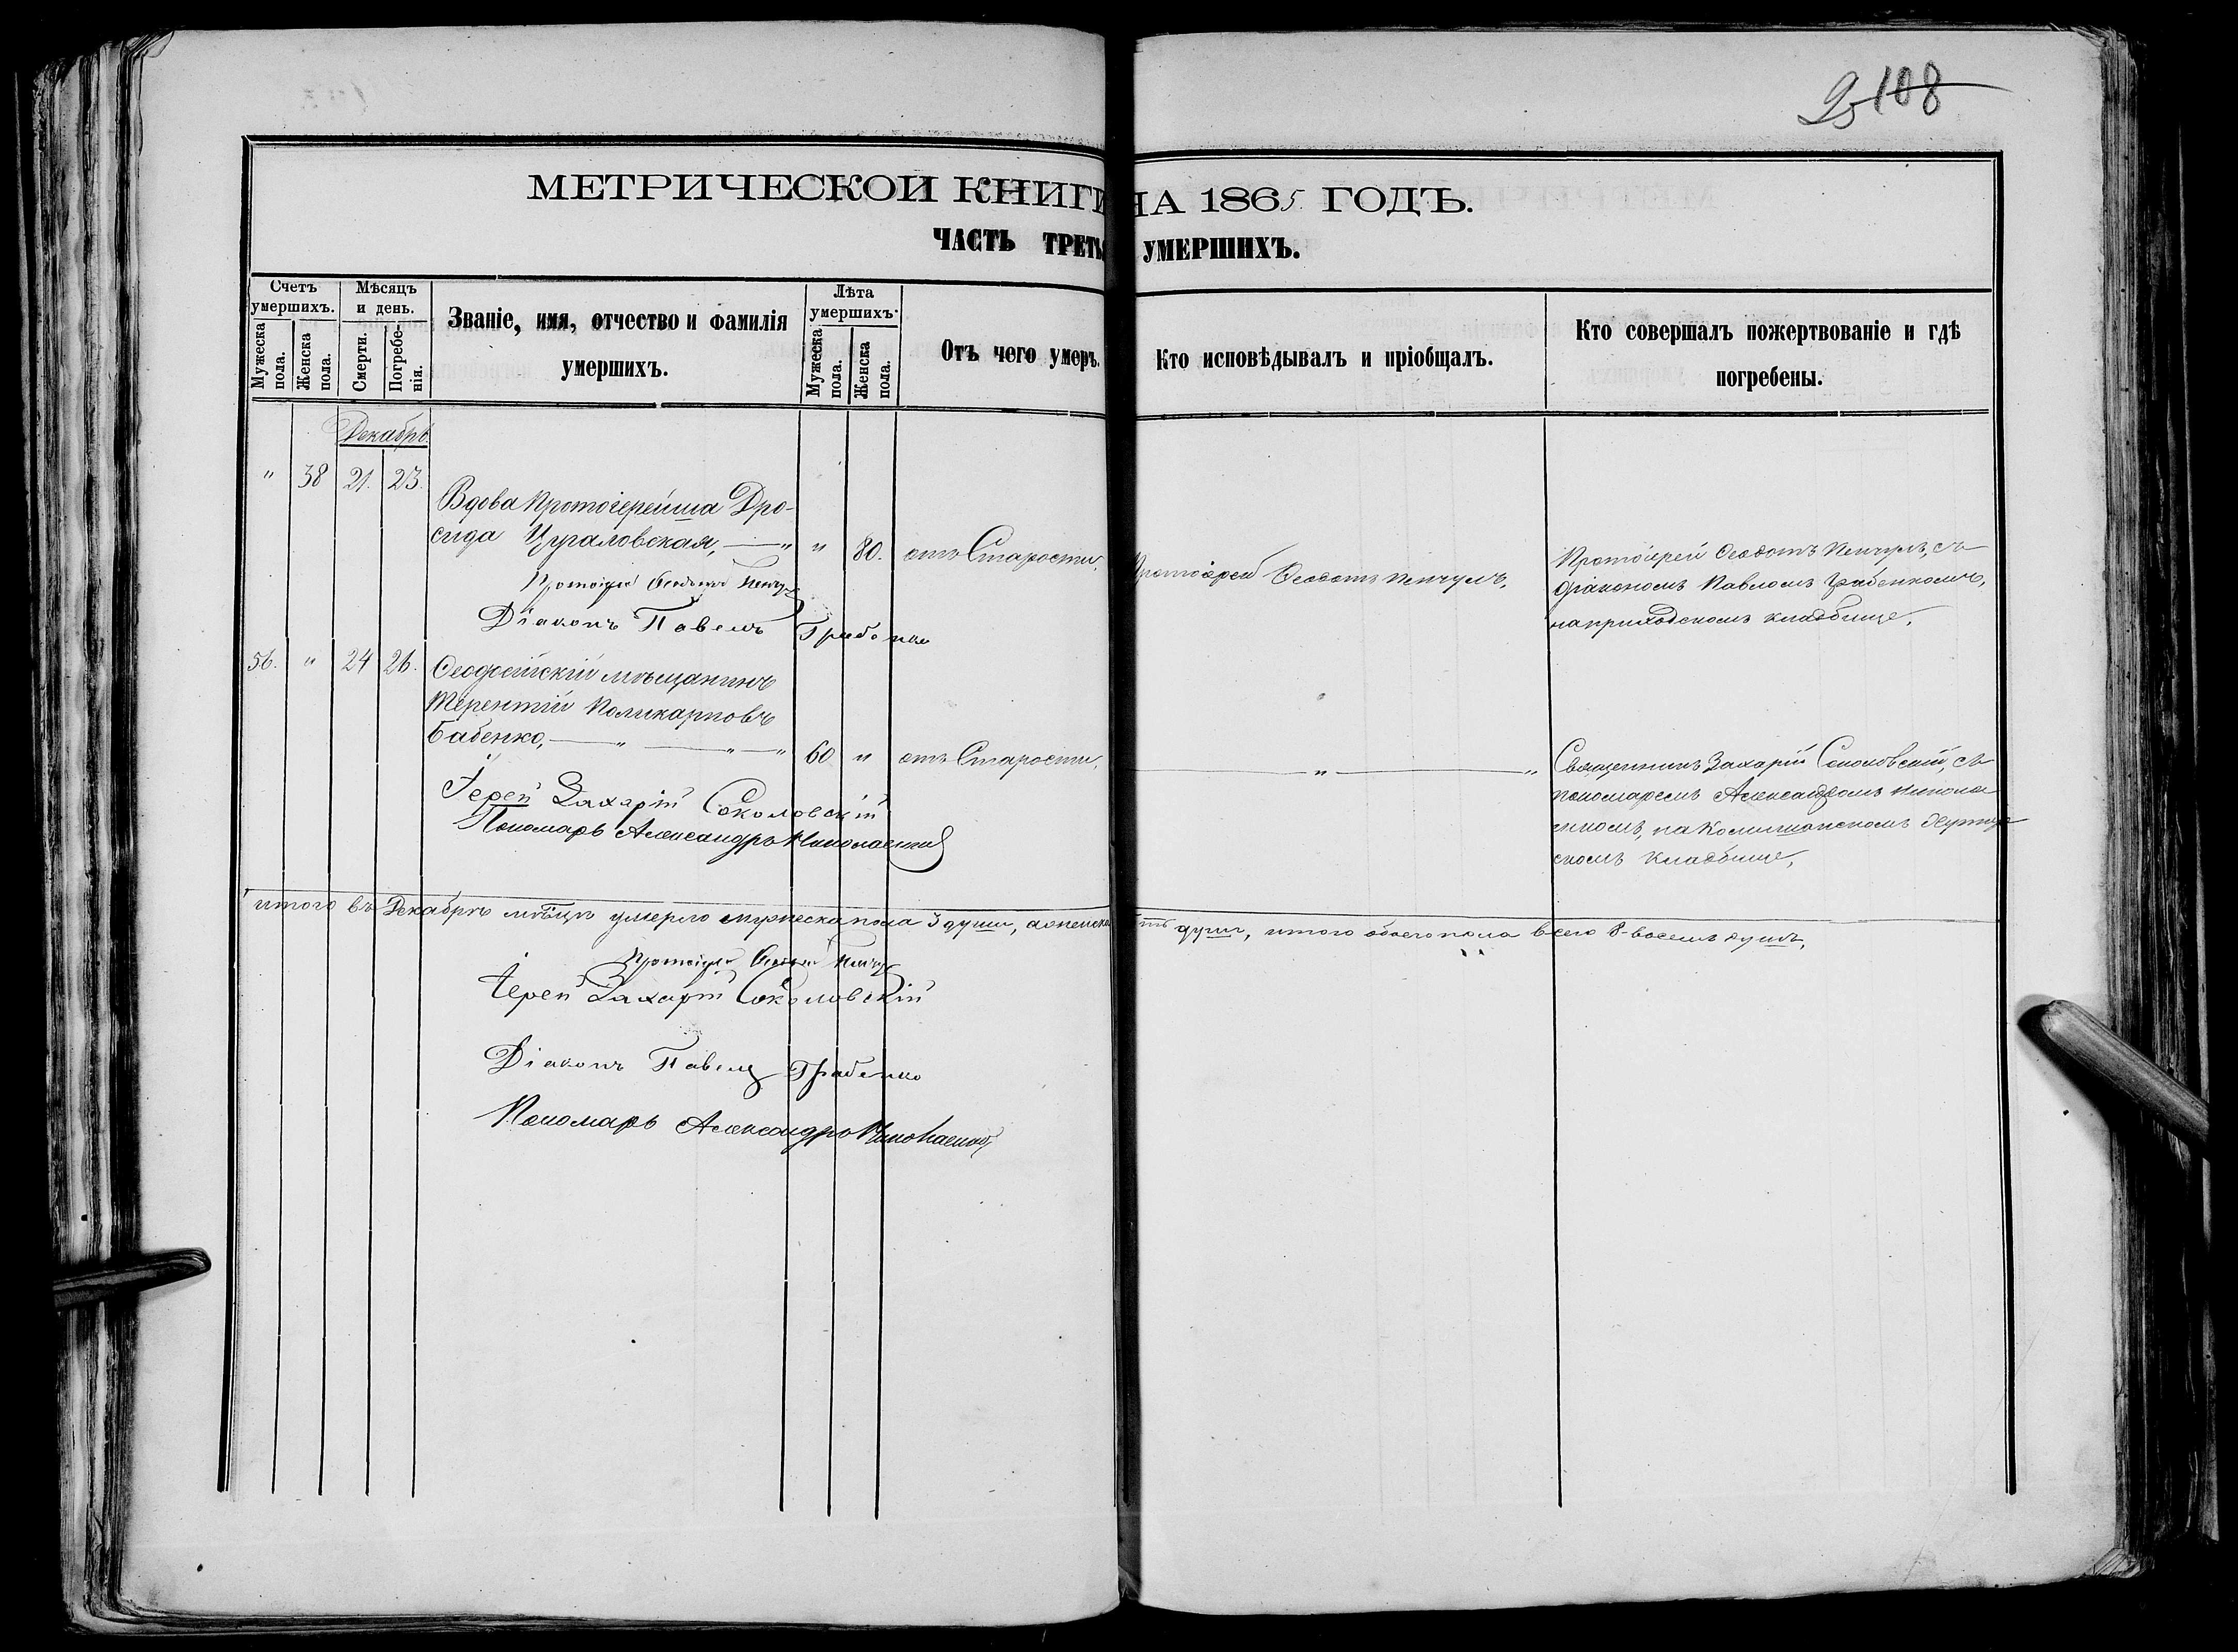 25 108
МЕТРИЧЕСКОЙ КНИГИ НА 1865 ГОДЪ.
ЧАСТЬ ТРЕТЬ УМЕРШИХЪ.
Счетъ умершихъ.
Мужеска пола.
Женска пола.
Мѣсяцъ и день.
Смерти.
Погребенія.
Званіе, имя, отчество и фамилія
умершихъ.
Лѣта умершихъ.
Мужеска пола.
Женска пола.
Отъ чего умеръ.
Кто исповѣдывалъ и пріобщалъ.
Кто совершалъ пожертвованіе и гдѣ
погребены.
Декабрь
" 38 21. 23.
Вдова Протоіерейша Дро-
сида Цугаловская, " " 80. отъ Старости.
Протоіерей Ѳеодотъ
Діаконъ Павелъ Грабенко
Протоіерей Ѳеодотъ
Протоіерей Ѳеодотъ съ
діакономъ Павломъ Грабенкомъ,
на приходскомъ кладбище.
56. " 24 26. Ѳеодосійскій мѣщанинъ
Терентій Поликарповъ
Бабенко, " " " 60 " отъ Старости.
Іерей Захарій Соколовскій
Пономарь Александръ Николаенко
" "
Священникъ Захарій Соколовскій, съ
пономаремъ Александромъ Никола
енкомъ, на
скомъ кладбище.
итого въ Декабрѣ мѣсяцѣ умерло мужеска пола 3 души, а женска ть душъ, итого обоего пола всего 8-восемь душъ.
Протоіерей Ѳеодотъ
Іерей Захарій Соколовскій
Діаконъ Павелъ Грабенко
Пономарь Александръ Николаенко